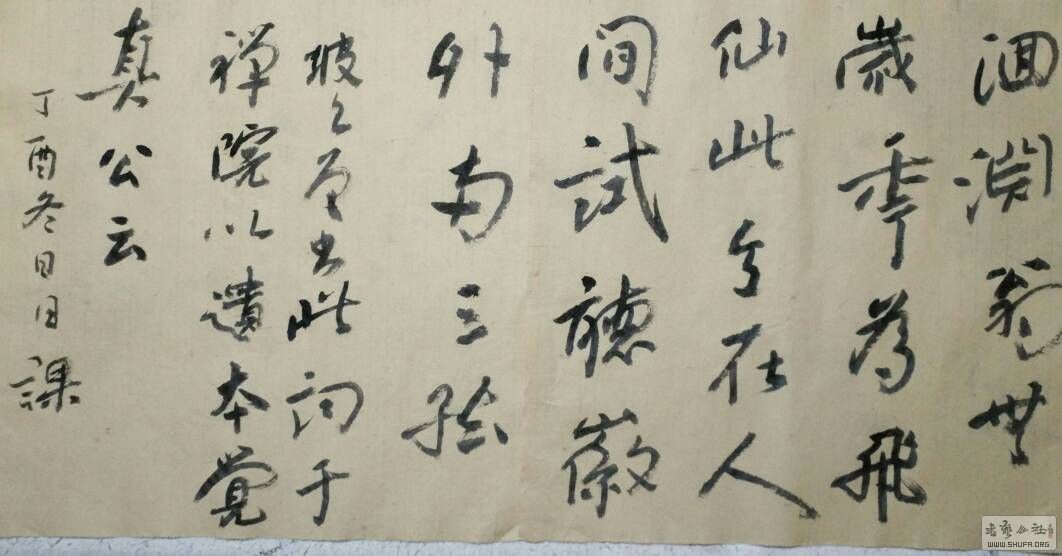 洄淵翁無
歲年為飛
仙此在人
間試聽徽
外兩三絃
坡書此詞于
禪院以遺本覺
真公云
丁酉冬日日課
書藝公社
WWW.SHUFA.ORG